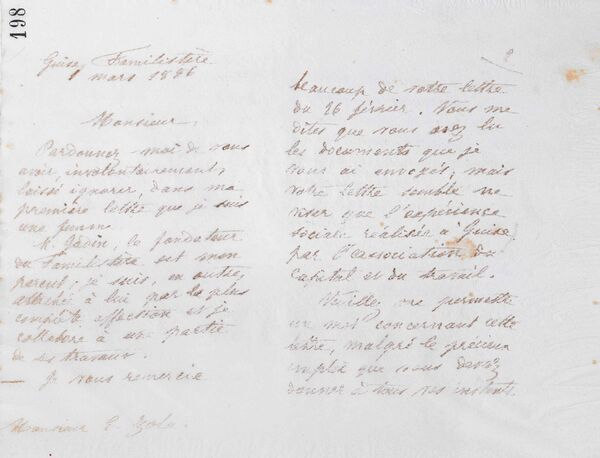 198
Guise, Familistère
1 mars 1886
Monsieur,
Pardonnez-moi de vous
avoir, involontairement,
laissé ignorer, dans ma
première lettre que je suis
une femme.
M. Godin, le fondateur
du Familistère est mon
parent; je suis, en outre,
attaché à lui par la plus
complète affection et je
collabore à une partie
de ses travaux.
— Je vous remercie
Monsieur E. Zola.
2
beaucoup de votre lettre
du 26 février. Vous me
dites que vous avez lu
les documents que je
vous ai envoyés; mais
votre lettre semble ne
viser que l'expérience
sociale réalisée à Guise,
par l'association du
capital et du travail.
Veuillez me permettre
un mot concernant cette
œuvre, malgré le précieux
emploi que vous devez
donner à tous vos instants.